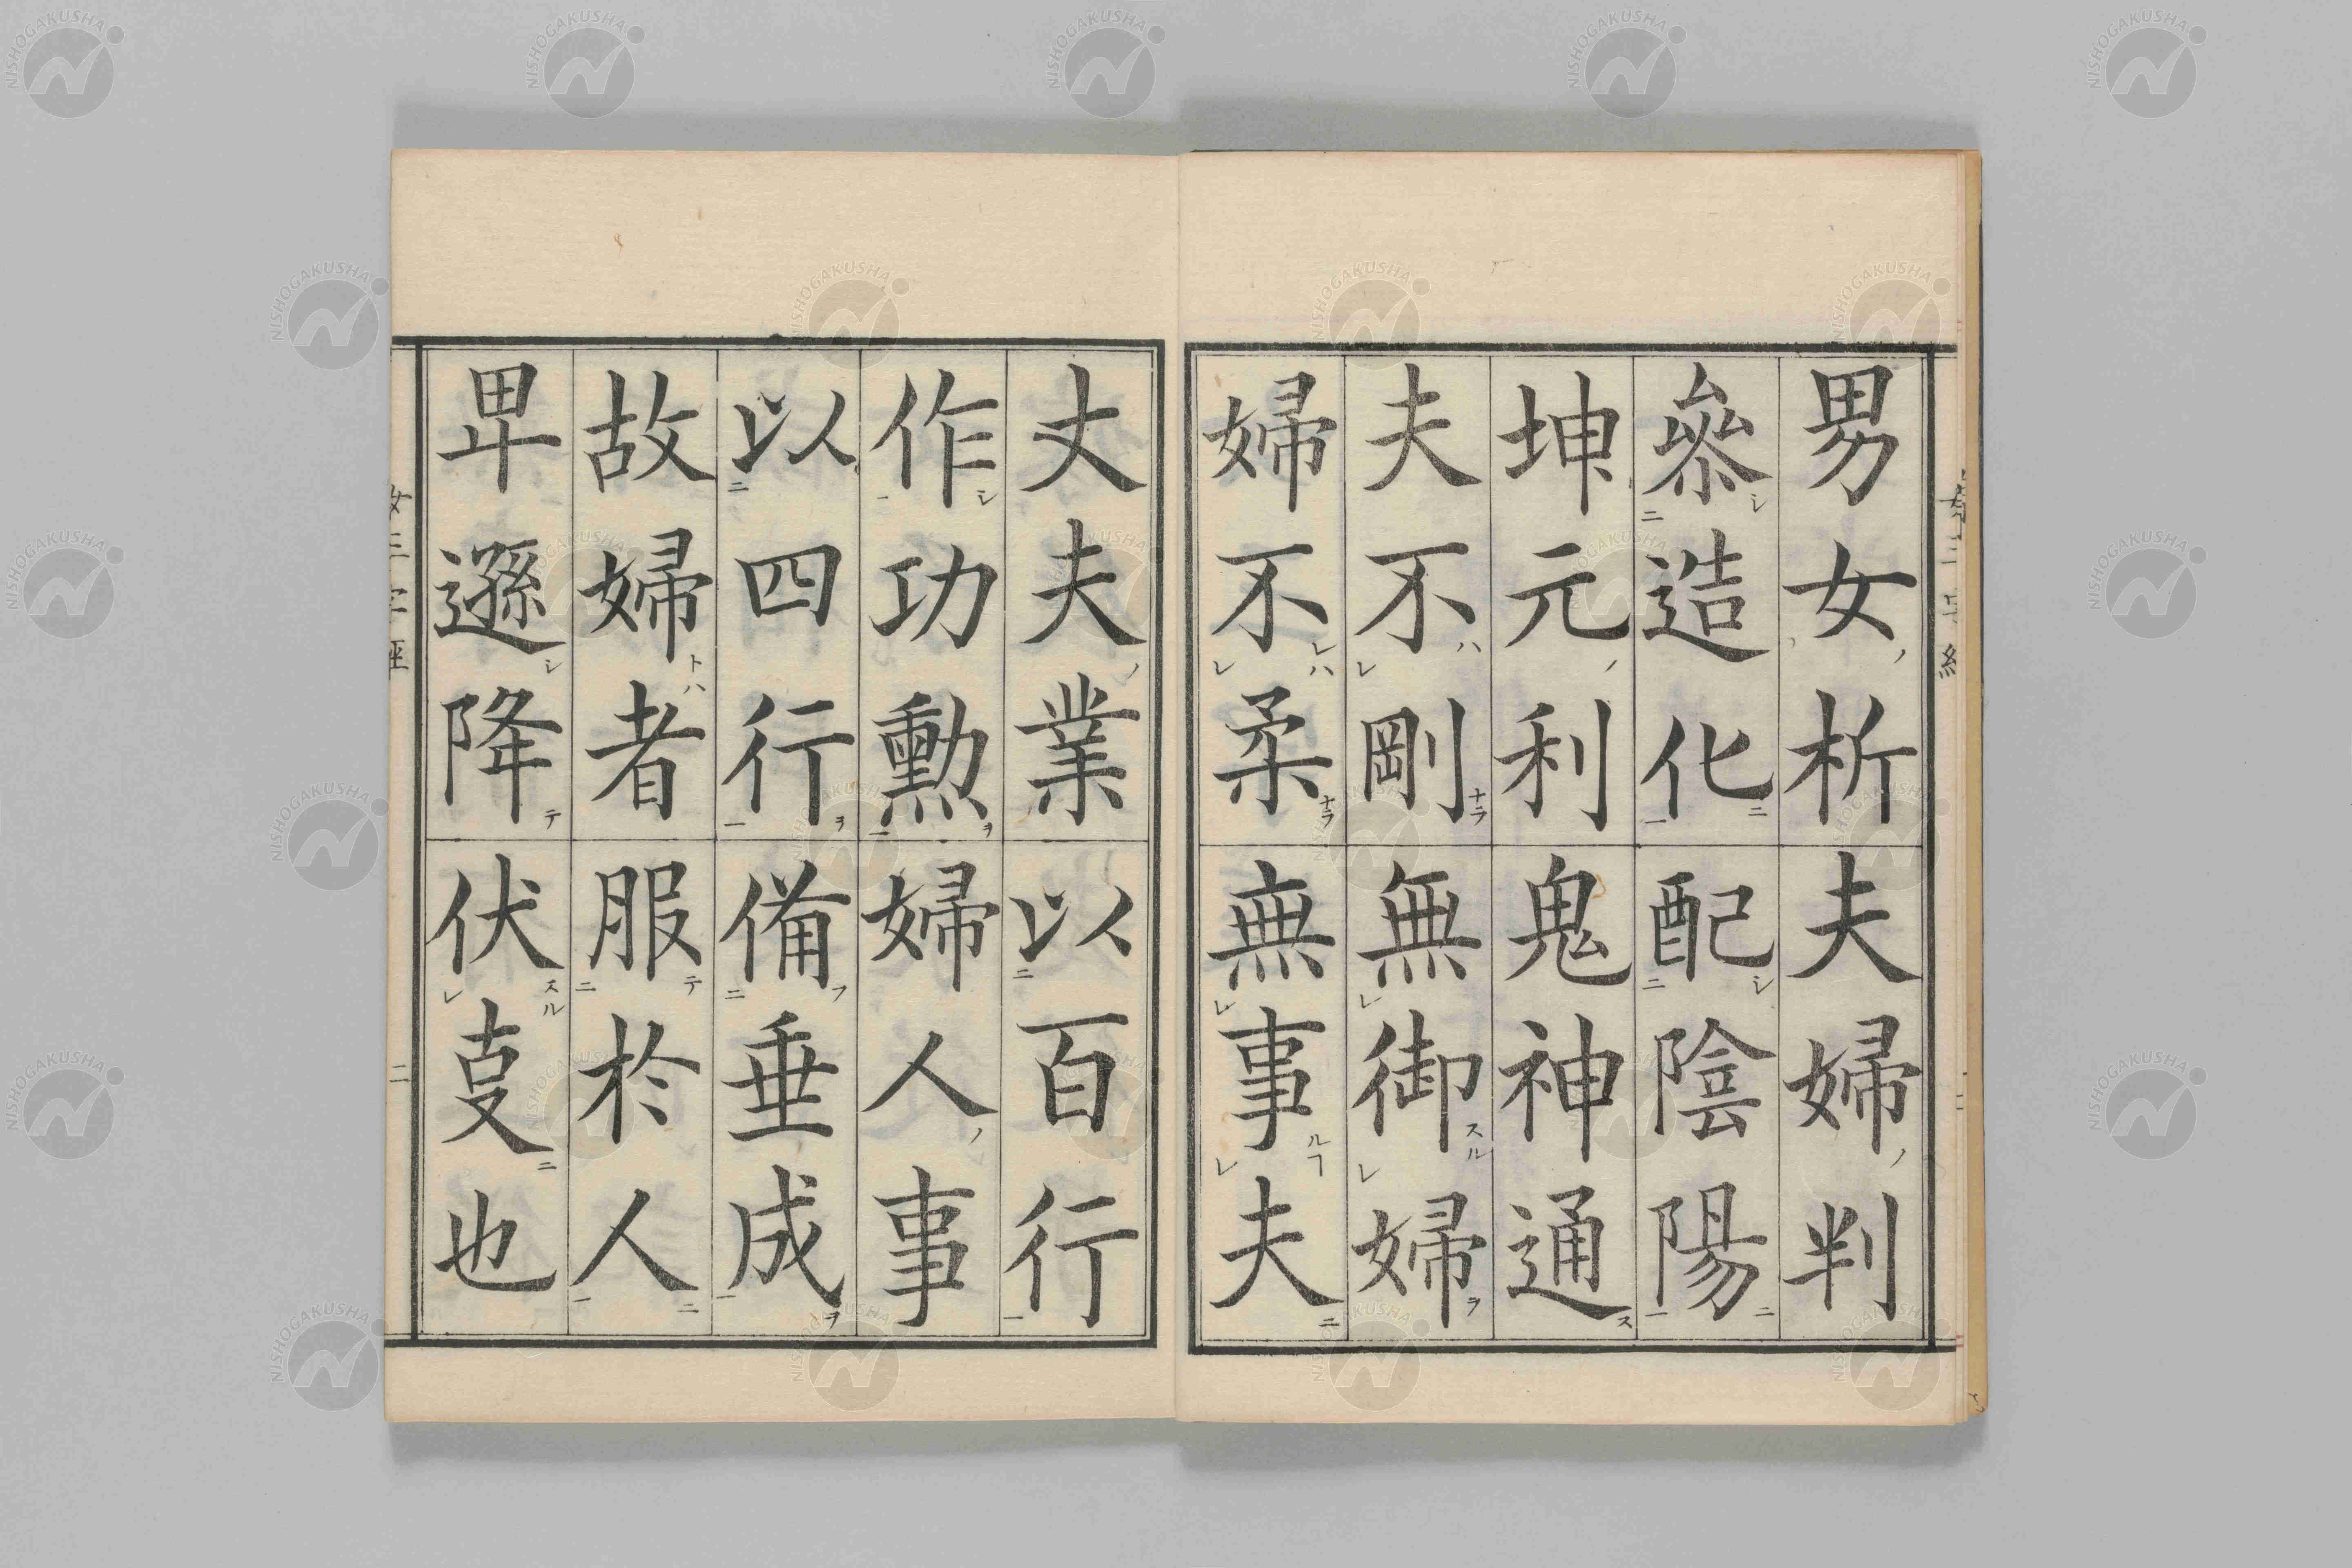 男女析夫婦判
參造化配陰陽
坤元利鬼神通
夫不剛無御婦
婦不柔無事夫
丈夫業以百行
作功勲婦人事
以四行備垂成
故婦者服於人
卑遜降伏叓也
女三字經
二
NISHOGAKUSHA